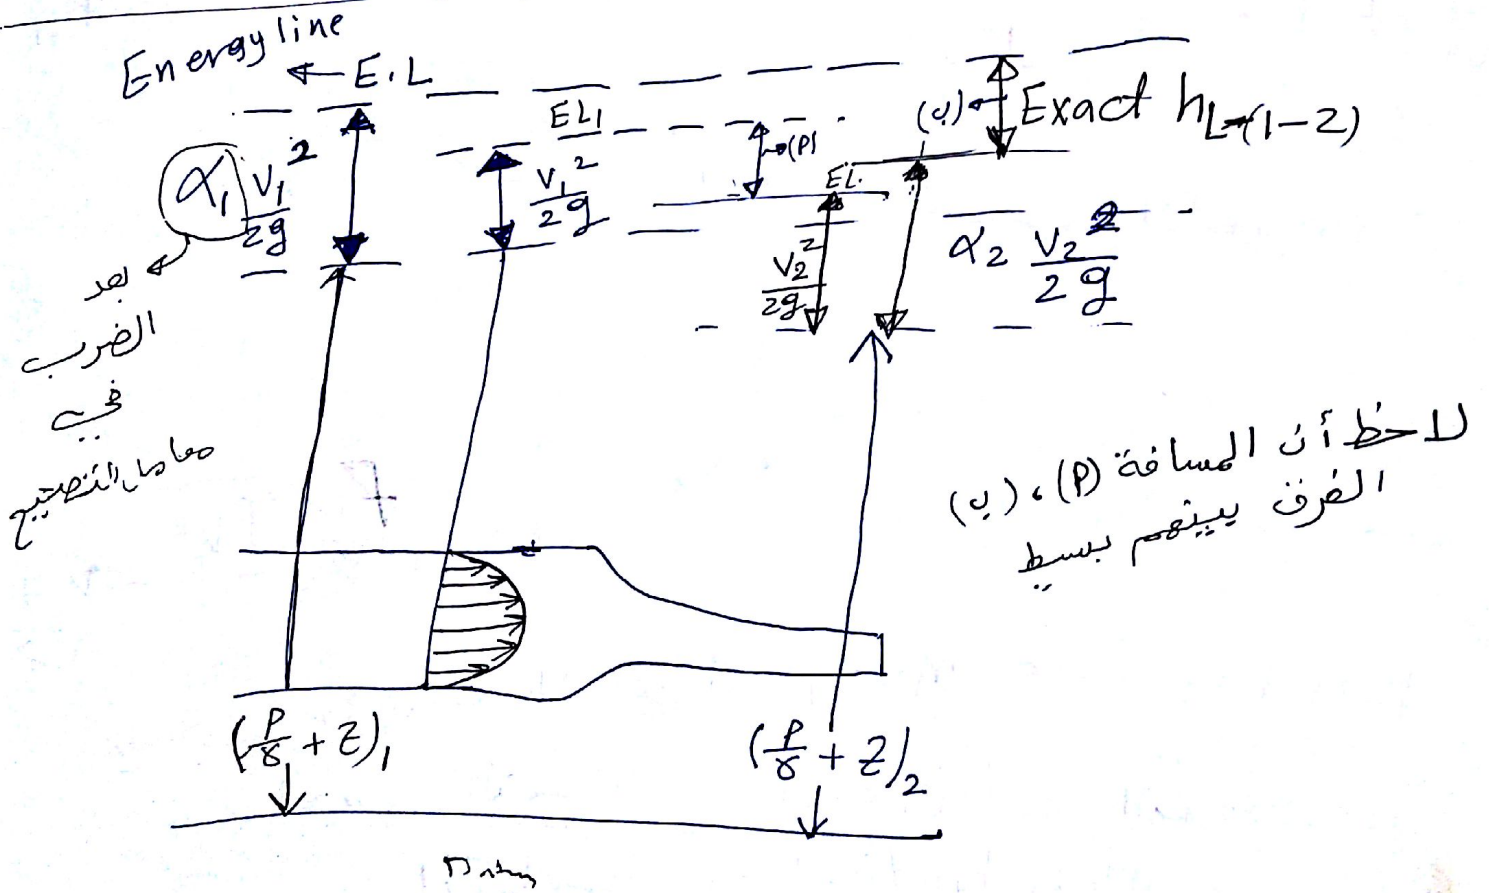 Energy line
← E.L
α₁ V₁²/2g
بعد
الضرب
في
معامل التصحيح
EL₁
V₁²/2g
(P)
EL.
V₂²/2g
(ب) Exact h_L-(1-2)
α₂ V₂²/2g
لاحظ أن المسافة (P)، (ب)
الفرق بينهم بسيط
(P/γ + Z)₁
(P/γ + Z)₂
Datum